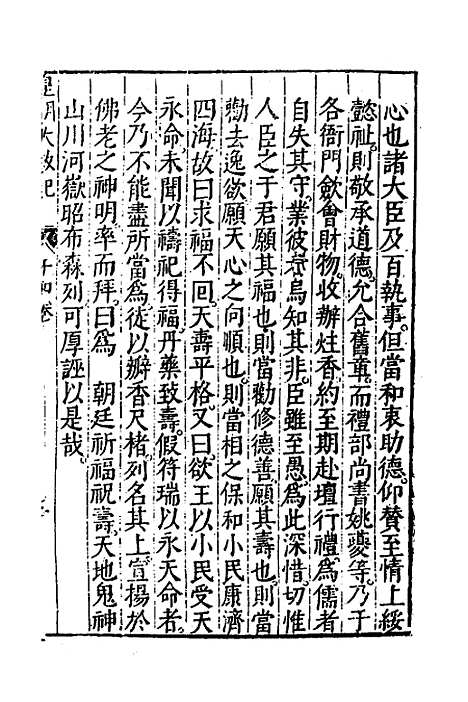 心也諸大臣及百執事但當和衷助德仰贊至情上綏
懿祉則敬承道德允合舊章而禮部尚書姚夔等乃于
各衙門斂會財物收辦炷香約至期赴壇行禮為儒者
自失其守業彼烏知其非臣雖至愚為此深惜切惟
人臣之于君願其福也則當勸修德善願其壽也則當
勸去逸欲願天心之向順也則當相之保和小民康濟
四海故曰求福不回天壽平格又曰欲王以小民受天
永命未聞以禱祀得福丹藥致壽假符瑞以永天命者
今乃不能盡所當為徒以瓣香尺楮列名其上宣揚於
佛老之神明率而拜曰為 朝廷祈福祝壽天地鬼神
山川河嶽昭布森列可厚誣以是哉
皇明大政記 十四卷